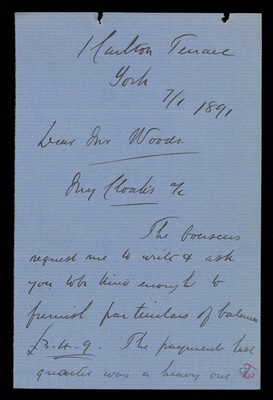 1 Carlton Terrace
York
7/1 1891
Dear Mr Woods.
My Cloak's a/c
The
request me to write & ask
you to be kind enough to
furnish particulars of balance
£2.4.9. The payment last
quarter was a heavy one &